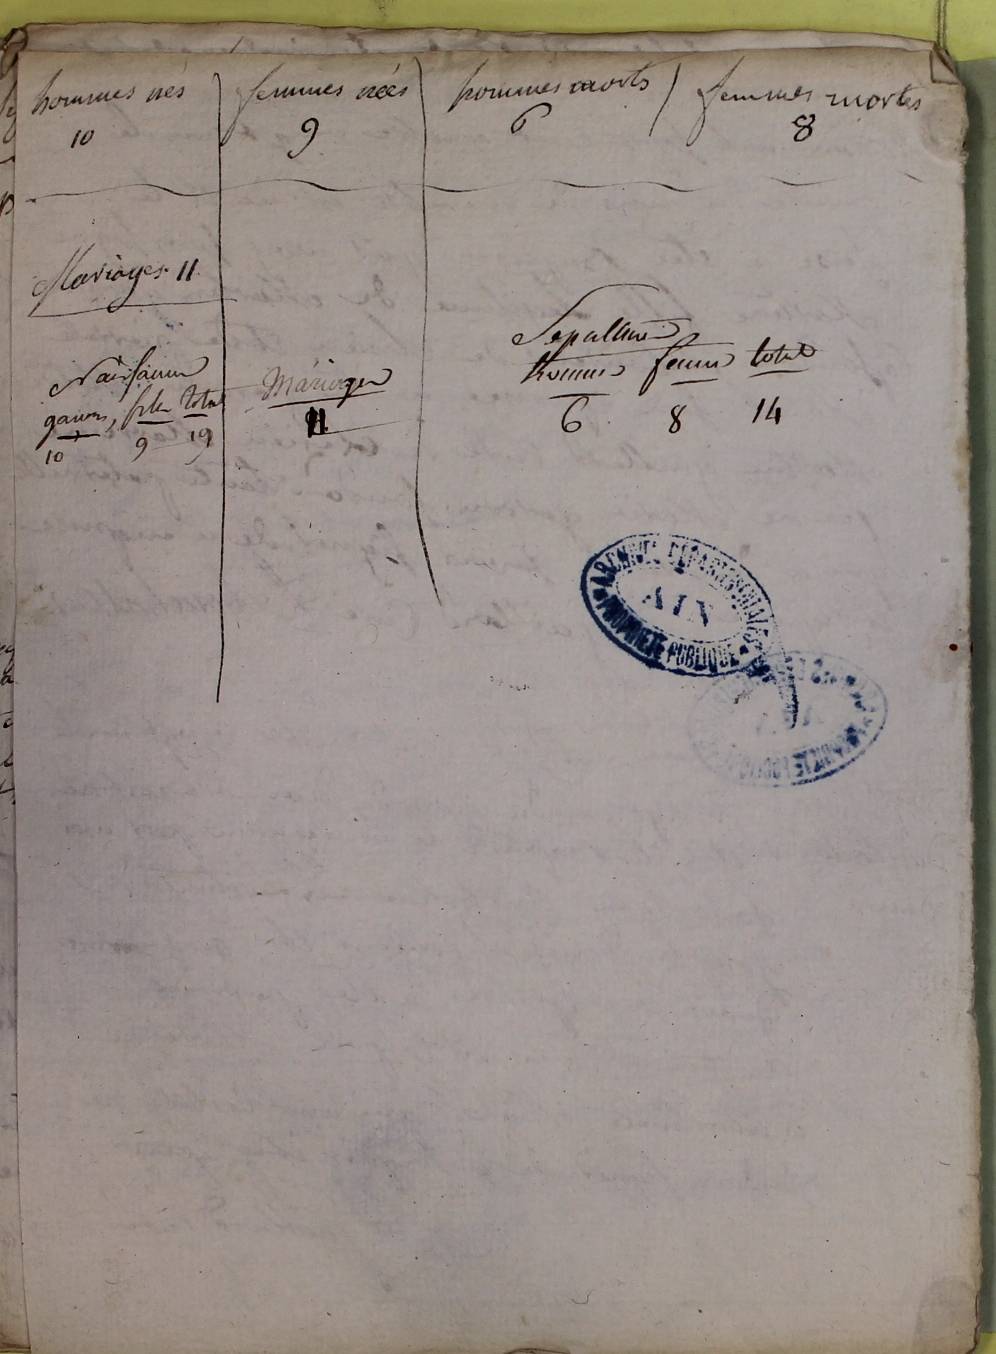 hommes nés femmes nées hommes morts femmes mortes
10 9 6 8
Mariages 11
Sepultures
Naissances Mariages hommes femmes total
garcons, filles total 11 6 8 14
10 9 19
ARCHIVES DÉPARTEMENTALES
AIN
PROPRIÉTÉ PUBLIQUE